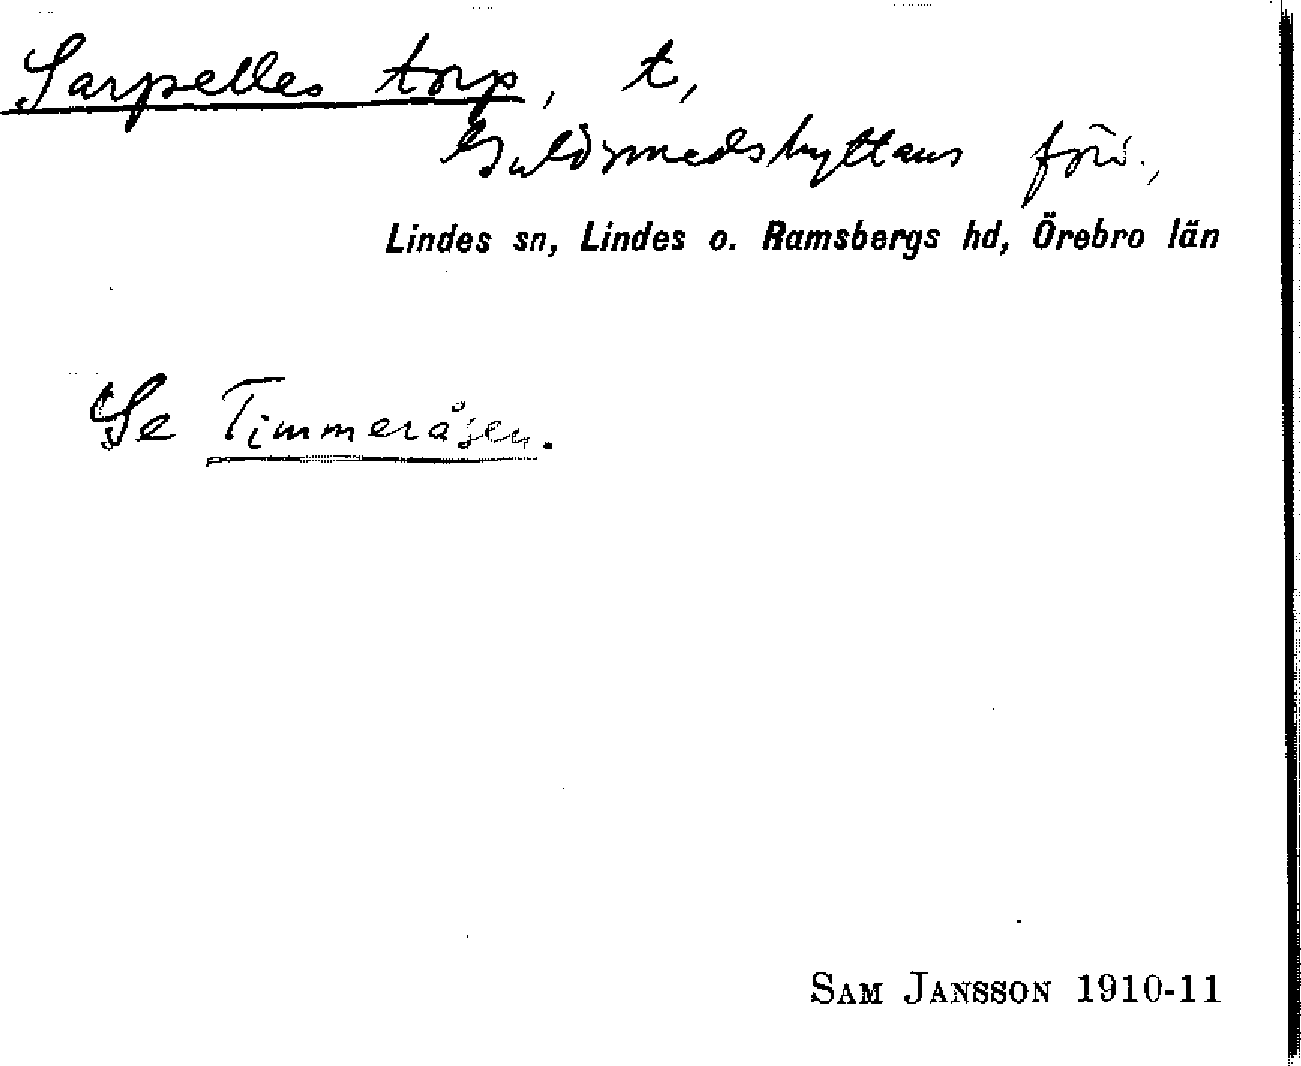 Sarpelles torp, t,
Guldsmedshyttans förs.,
Lindes sn, Lindes o. Ramsbergs hd, Örebro län
Se Timmeråsen.
SAM JANSSON 1910-11